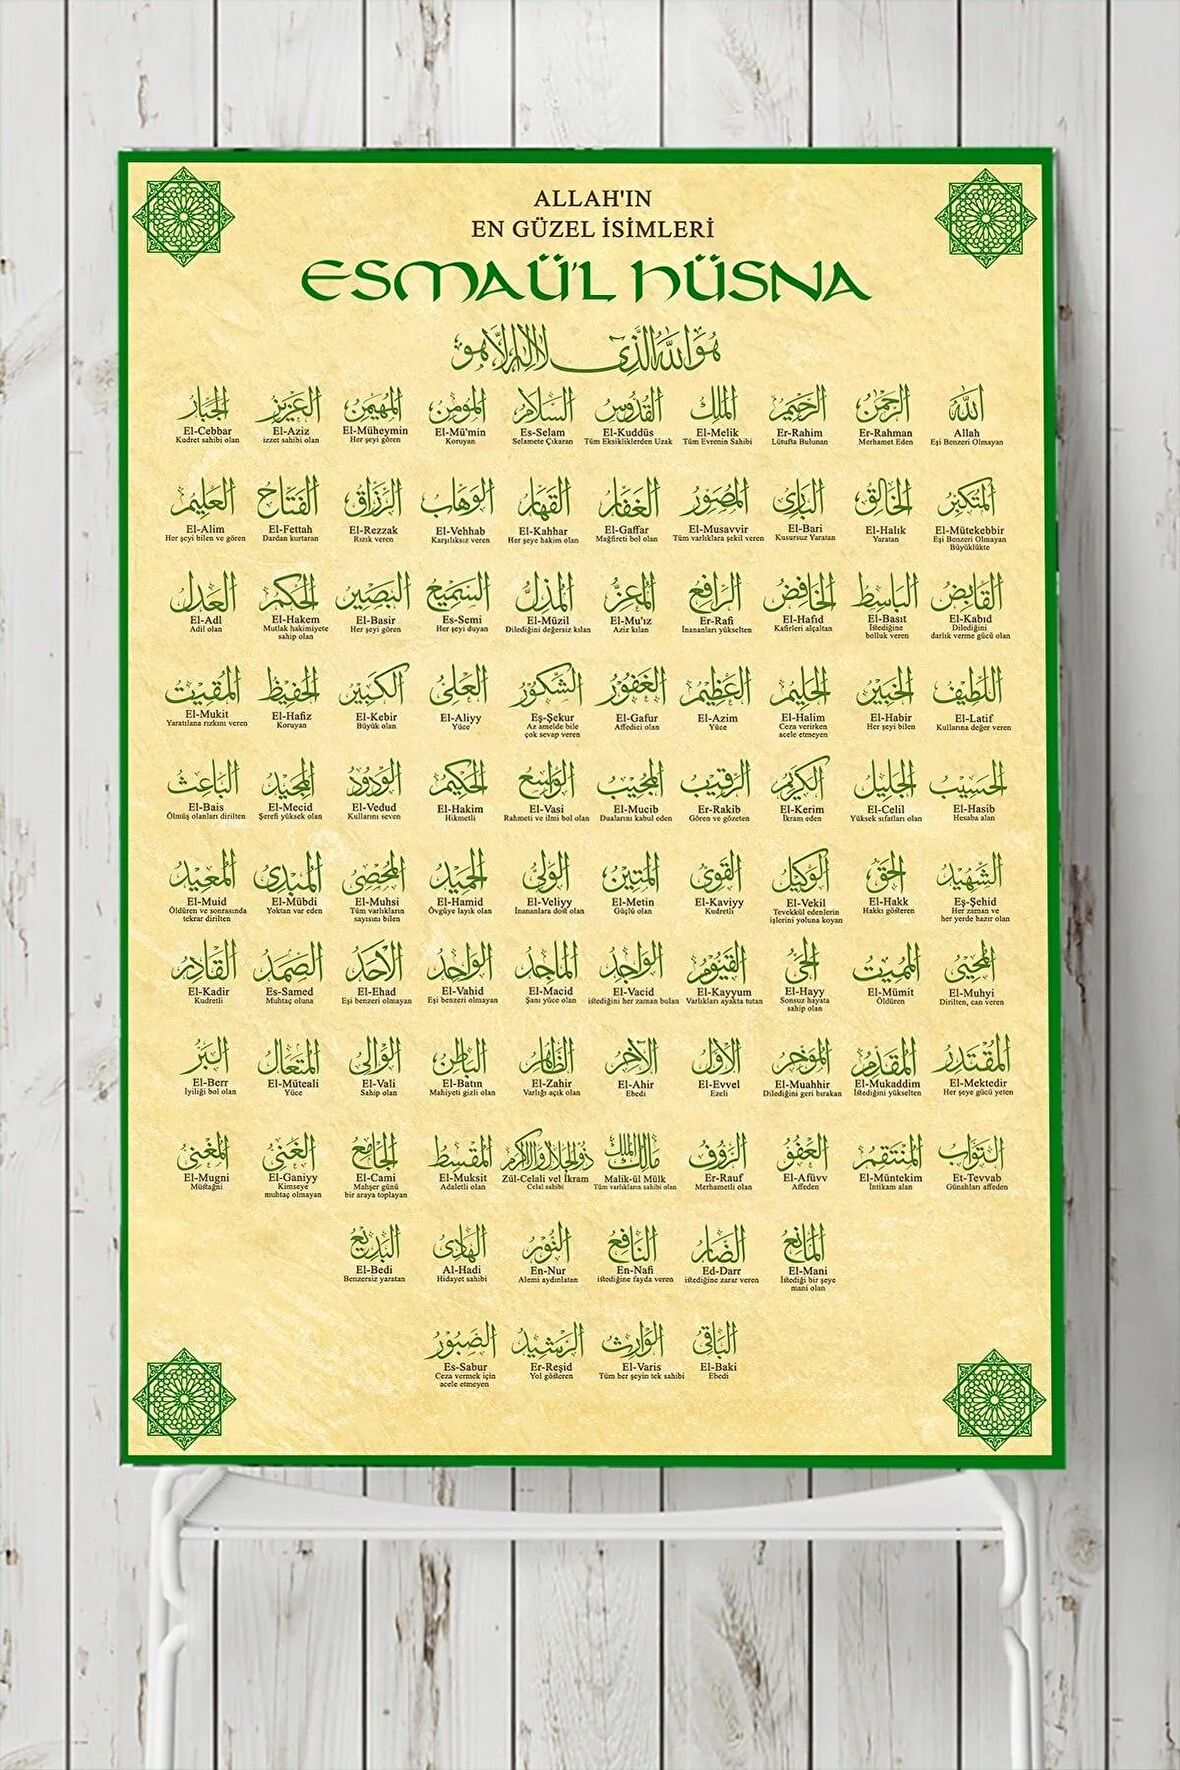 ALLAH'IN
EN GÜZEL İSİMLERİ
ESMAÜ'L HÜSNA
هُوَ اللّٰهُ الَّذِي لَا اِلٰهَ اِلَّا هُوَ
الله الرحمن الرحيم الملك القدوس السلام المؤمن المهيمن العزيز الجبار
El-Cebbar El-Aziz El-Müheymin El-Mü'min Es-Selam El-Kuddüs El-Melik Er-Rahim Er-Rahman Allah
Kudret sahibi olan izzet sahibi olan Her şeyi gören Koruyan Selamete Çıkaran Tüm Eksikliklerden Uzak Tüm Evrenin Sahibi Lütufta Bulunan Merhamet Eden Eşi Benzeri Olmayan
المتكبر الخالق البارئ المصور الغفار القهار الوهاب الرزاق الفتاح العليم
El-Alim El-Fettah El-Rezzak El-Vehhab El-Kahhar El-Gaffar El-Musavvir El-Bari El-Halık El-Mütekebbir
Her şeyi bilen ve gören Dardan kurtaran Rızık veren Karşılıksız veren Her şeye hakim olan Mağfireti bol olan Tüm varlıklara şekil veren Kusursuz Yaratan Yaratan Eşi Benzeri Olmayan
Büyüklükte
القابض الباسط الخافض الرافع المعز المذل السميع البصير الحكم العدل
El-Adl El-Hakem El-Basir Es-Semi El-Müzil El-Mu'ız Er-Rafi El-Hafıd El-Basıt El-Kabıd
Adil olan Mutlak hakimiyete Her şeyi gören Her şeyi duyan Dilediğini değersiz kılan Aziz kılan İnananları yükselten Kafirleri alçaltan İstediğine Dilediğini
sahip olan bolluk veren darlık verme gücü olan
اللطيف الخبير الحليم العظيم الغفور الشكور العلي الكبير الحفيظ المقيت
El-Mukit El-Hafız El-Kebir El-Aliyy Eş-Şekur El-Gafur El-Azim El-Halim El-Habir El-Latif
Yaratılana rızkını veren Koruyan Büyük olan Yüce Az amelde bile Affedici olan Yüce Ceza verirken Her şeyi bilen Kullarına değer veren
çok sevap veren acele etmeyen
الحسيب الجليل الكريم الرقيب المجيب الواسع الحكيم الودود المجيد الباعث
El-Bais El-Mecid El-Vedud El-Hakim El-Vasi El-Mucib Er-Rakib El-Kerim El-Celil El-Hasib
Ölmüş olanları dirilten Şerefi yüksek olan Kullarını seven Hikmetli Rahmeti ve ilmi bol olan Dualarını kabul eden Gören ve gözeten İkram eden Yüksek sıfatları olan Hesaba alan
الشهيد الحق الوكيل القوى المتين الولى الحميد المحصى المبدئ المعيد
El-Muid El-Mübdi El-Muhsi El-Hamid El-Veliyy El-Metin El-Kaviyy El-Vekil El-Hakk Eş-Şehid
Öldüren ve sonrasında Yoktan var eden Tüm varlıkların Övgüye layık olan İnananlara dost olan Güçlü olan Kudretli Tevekkül edenlerin Hakkı gösteren Her zaman ve
tekrar dirilten sayısını bilen işlerini yoluna koyan her yerde hazır olan
المحيى المميت الحي القيوم الواجد الماجد الواحد الأحد الصمد القادر
El-Kadir Es-Samed El-Ehad El-Vahid El-Macid El-Vacid El-Kayyum El-Hayy El-Mümit El-Muhyi
Kudretli Muhtaç oluna Eşi benzeri olmayan Eşi benzeri olmayan Şanı yüce olan istediğini her zaman bulan Varlıkları ayakta tutan Sonsuz hayata Öldüren Dirilten, can veren
sahip olan
المقتدر المقدم المؤخر الأول الآخر الظاهر الباطن الوالي المتعال البر
El-Berr El-Müteali El-Vali El-Batın El-Zahir El-Ahir El-Evvel El-Muahhir El-Mukaddim El-Mektedir
İyiliği bol olan Yüce Sahip olan Mahiyeti gizli olan Varlığı açık olan Ebedi Ezeli Dilediğini geri bırakan İstediğini yükselten Her şeye gücü yeten
التواب المنتقم العفو الرؤوف مالك الملك ذو الجلال والاكرام المقسط الجامع الغني المغنى
El-Mugni El-Ganiyy El-Cami El-Muksit Zül-Celali vel İkram Malik-ül Mülk Er-Rauf El-Afüvv El-Müntekim Et-Tevvab
Müstağni Kimseye Mahşer günü Adaletli olan Celal sahibi Tüm varlıkların sahibi olan Merhametli olan Affeden İntikam alan Günahları affeden
muhtaç olmayan bir araya toplayan
المانع الضار النافع النور الهادي البديع
El-Bedi Al-Hadi En-Nur En-Nafi Ed-Darr El-Mani
Benzersiz yaratan Hidayet sahibi Alemi aydınlatan istediğine fayda veren istediğine zarar veren İstediği bir şeye
mani olan
الباقى الوارث الرشيد الصبور
Es-Sabur Er-Reşid El-Varis El-Baki
Ceza vermek için Yol gösteren Tüm her şeyin tek sahibi Ebedi
acele etmeyen